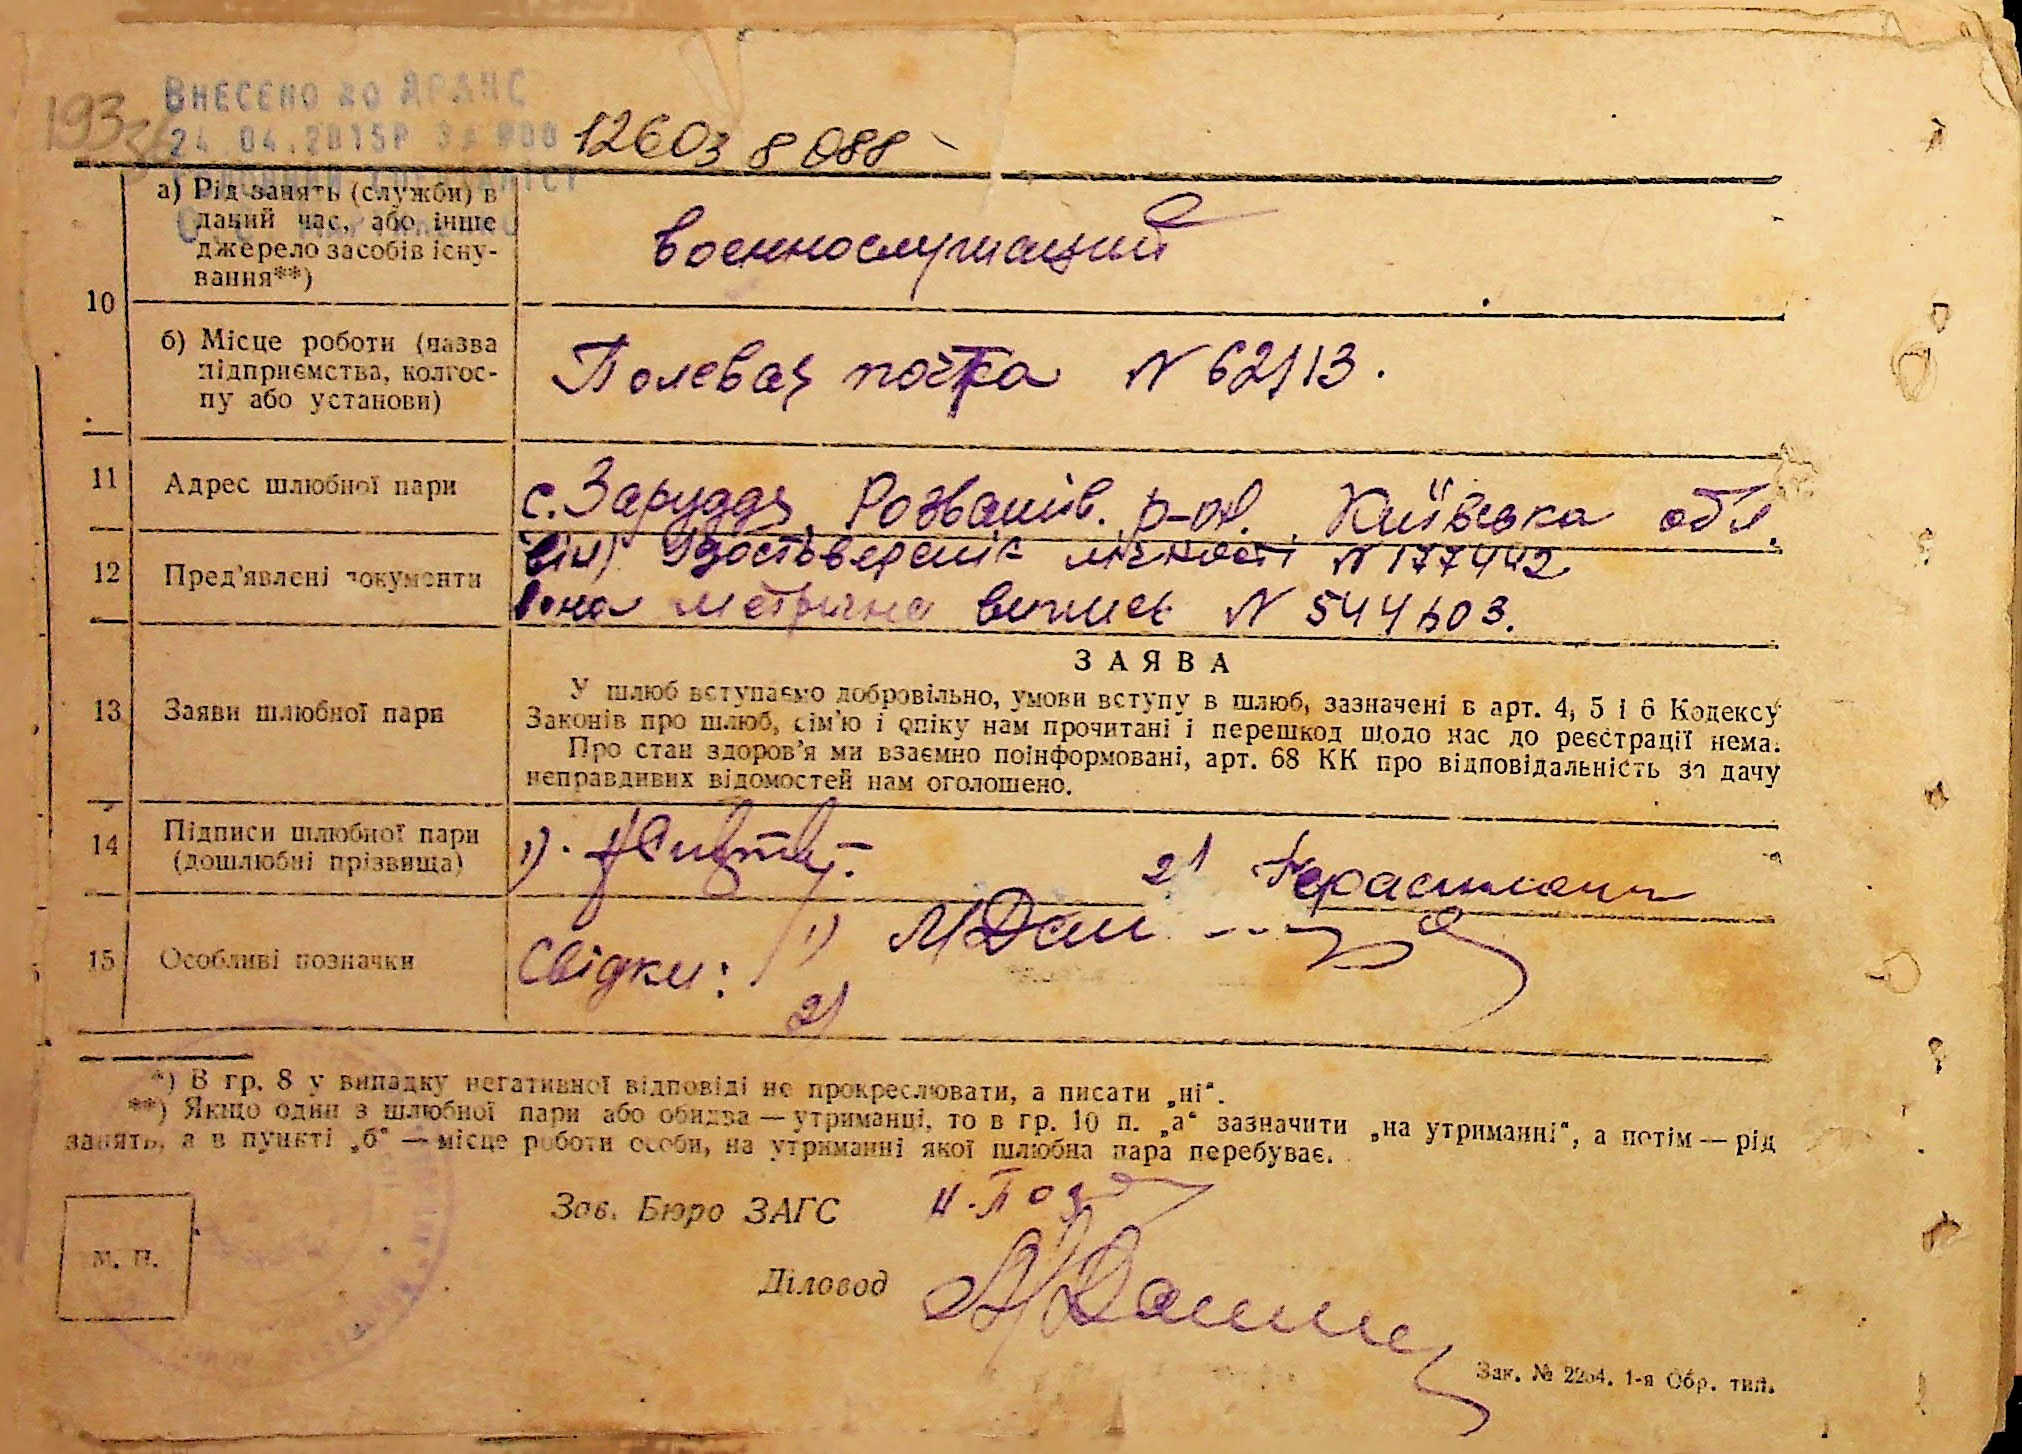 193
ВНЕСЕНО ДО ДРАЦС
24.04.2015Р ЗА №00 12603 8 088
10
а) Рід занять (служби) в
даний час, або інше
джерело засобів існу-
вання**)
военнослужащий
б) Місце роботи (назва
підприємства, колгос-
пу або установи)
Полевая почта N 62113.
11 Адрес шлюбної пари
с. Заруддя, Розважів. р-н. Київська обл.
12 Пред'явлені документи
він) Удостоверенік лічності N 177442
Вона метрична випись N 544603.
13 Заяви шлюбної пари
ЗАЯВА
У шлюб вступаємо добровільно, умови вступу в шлюб, зазначені в арт. 4, 5 і 6 Кодексу
Законів про шлюб, сім'ю і опіку нам прочитані і перешкод щодо нас до реєстрації нема.
Про стан здоров'я ми взаємно поінформовані, арт. 68 КК про відповідальність за дачу
неправдивих відомостей нам оголошено.
14 Підписи шлюбної пари
(дошлюбні прізвища)
1). 2)
15 Особливі позначки
Свідки: 1)
2)
*) В гр. 8 у випадку негативної відповіді не прокреслювати, а писати „ні“.
**) Якщо один з шлюбної пари або обидва — утриманці, то в гр. 10 п. „а“ зазначити „на утриманні“, а потім — рід
занять, а в пункті „б“ — місце роботи особи, на утриманні якої шлюбна пара перебуває.
Зав. Бюро ЗАГС
М. П.
Діловод
Зак. № 2204. 1-я Обр. тип.